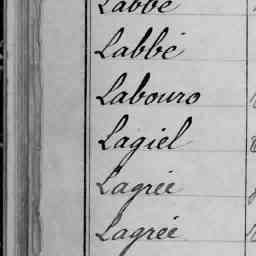 Labbé
Labbé
Labouro
Lagiel
Lagrée
Lagrée